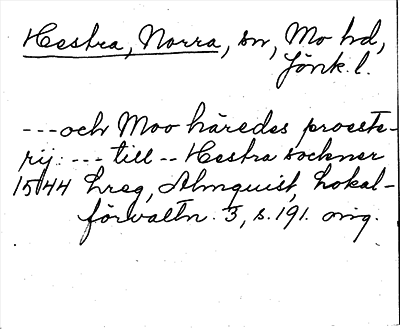 Hestra, Norra, sn, Mo hd,
Jönk. l.
---och Moo häredes prooste-
rij: --- till -- Hestra sockner
1544 hreg, Almquist, Lokal-
förvaltn. 3, s. 191. orig.